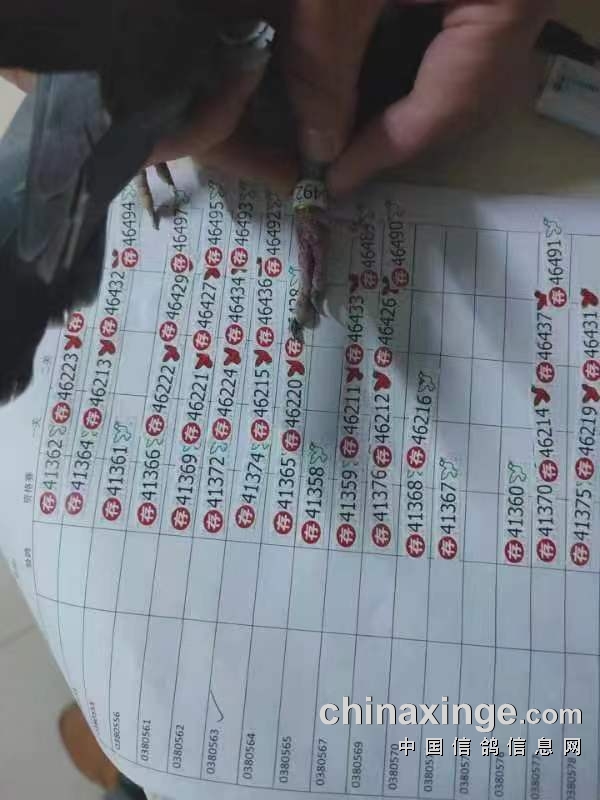 资格赛 一关 二关
存41362 存46223 存
存41364 存46213 存46432 存46494
0380556 存41361
0380561 存41366 存46222 存46429 存46497
0380562 存41369 存46221 存46427 存46495
0380563 存41372 存46224 存46434 存46493
0380564 存41374 存46215 存46436 存46492
0380565 存41365 存46220 存
0380567 存41358
0380569 存41359 存46211 存46433 存
0380570 存41376 存46212 存46426 存46490
存41368 存46216
存41367
存41360
存41370 存46214 存46437 存46491
0380578 存41375 存46219 存46431
chinaxinge.com
中国信鸽信息网